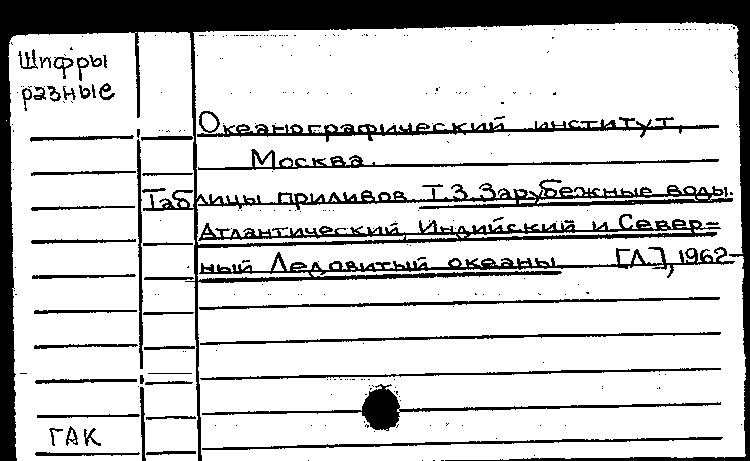 Шифры
разные
Океанографический институт,
Москва.
Таблицы приливов Т.3. Зарубежные воды.
Атлантический, Индийский и Север=
ный Ледовитый океаны [Л.], 1962-
ГАК